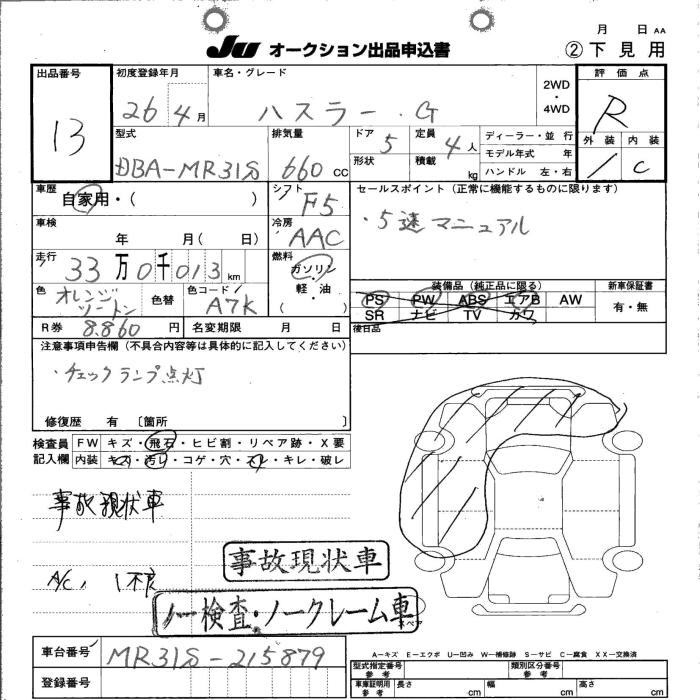 月 日 AA
JU オークション出品申込書 ②下見用
出品番号 初度登録年月 車名・グレード 2WD・4WD 評価点
13 26年4月 ハスラー・G R
型式 排気量 ドア 定員 ディーラー・並行 外装 内装
DBA-MR31S 660cc 5 4人 モデル年式 年 1 C
形状 積載 kg ハンドル 左・右
車歴 シフト セールスポイント(正常に機能するものに限ります)
自家用・( ) F5 ・5速マニュアル
車検 冷房
年 月( 日) AAC
走行 燃料 装備品(純正品に限る) 新車保証書
33万0千013km ガソリン・軽油・( ) PS PW ABS エアB AW 有・無
色 色替 色コード SR ナビ TV カワ
オレンジツートン A7K
R券 8.860円 名変期限 月 日 後日品
注意事項申告欄(不具合内容等は具体的に記入してください)
・チェックランプ点灯
修復歴 有 〔箇所 〕
検査員 FW キズ・飛石・ヒビ割・リペア跡・X要
記入欄 内装 キズ・汚れ・コゲ・穴・スレ・キレ・破レ
事故現状車
事故現状車
A/C 不良
ノー検査・ノークレーム車
車台番号 MR31S-215879
A-キズ E-エクボ U-凹み W-補修跡 S-サビ C-腐食 XX-交換済
登録番号 型式指定番号 参考 類別区分番号 参考
車庫証明用 参考 長さ cm 幅 cm 高さ cm